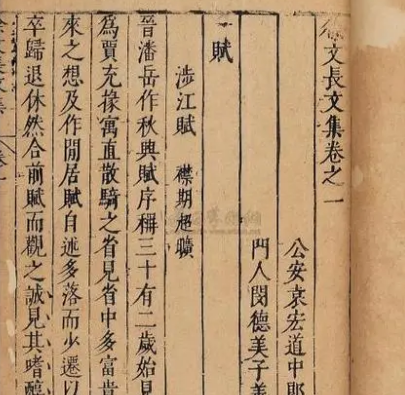 徐文長文集卷之一
公安袁宏道中郎
門人閔德美子善
賦
涉江賦 襟期超曠
晉潘岳作秋興賦序稱三十有二歲始見
為賈充掾寓直散騎之省見省中多富貴
來之想及作閒居賦自述多落而少遷以
卒歸退休然合前賦而觀之誠見其嗜醇